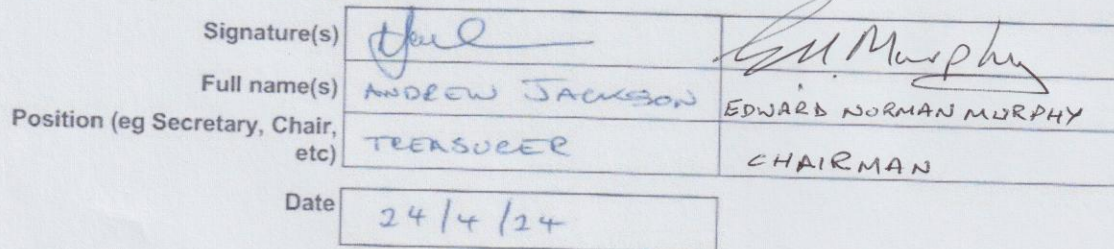 Signature(s) E N. Murphy
Full name(s) ANDREW JACKSON EDWARD NORMAN MURPHY
Position (eg Secretary, Chair,
etc) TREASURER CHAIRMAN
Date 24/4/24